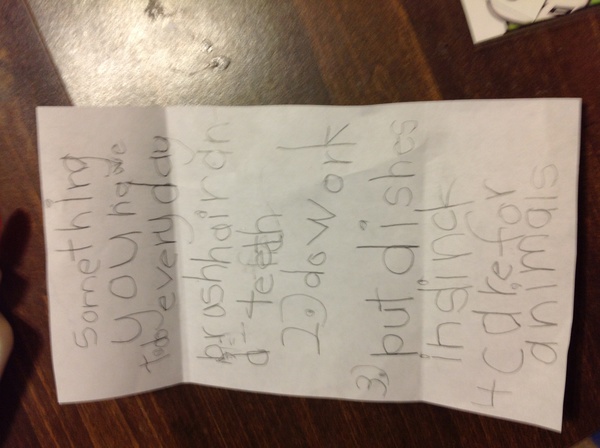 something
you have
todo every day
brush hair an
d teeth
2.) do work
3.) put dishes
in sink
4 care for
animals